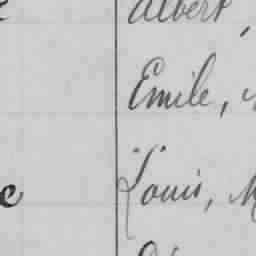 Albert,
Emile,
Louis, M